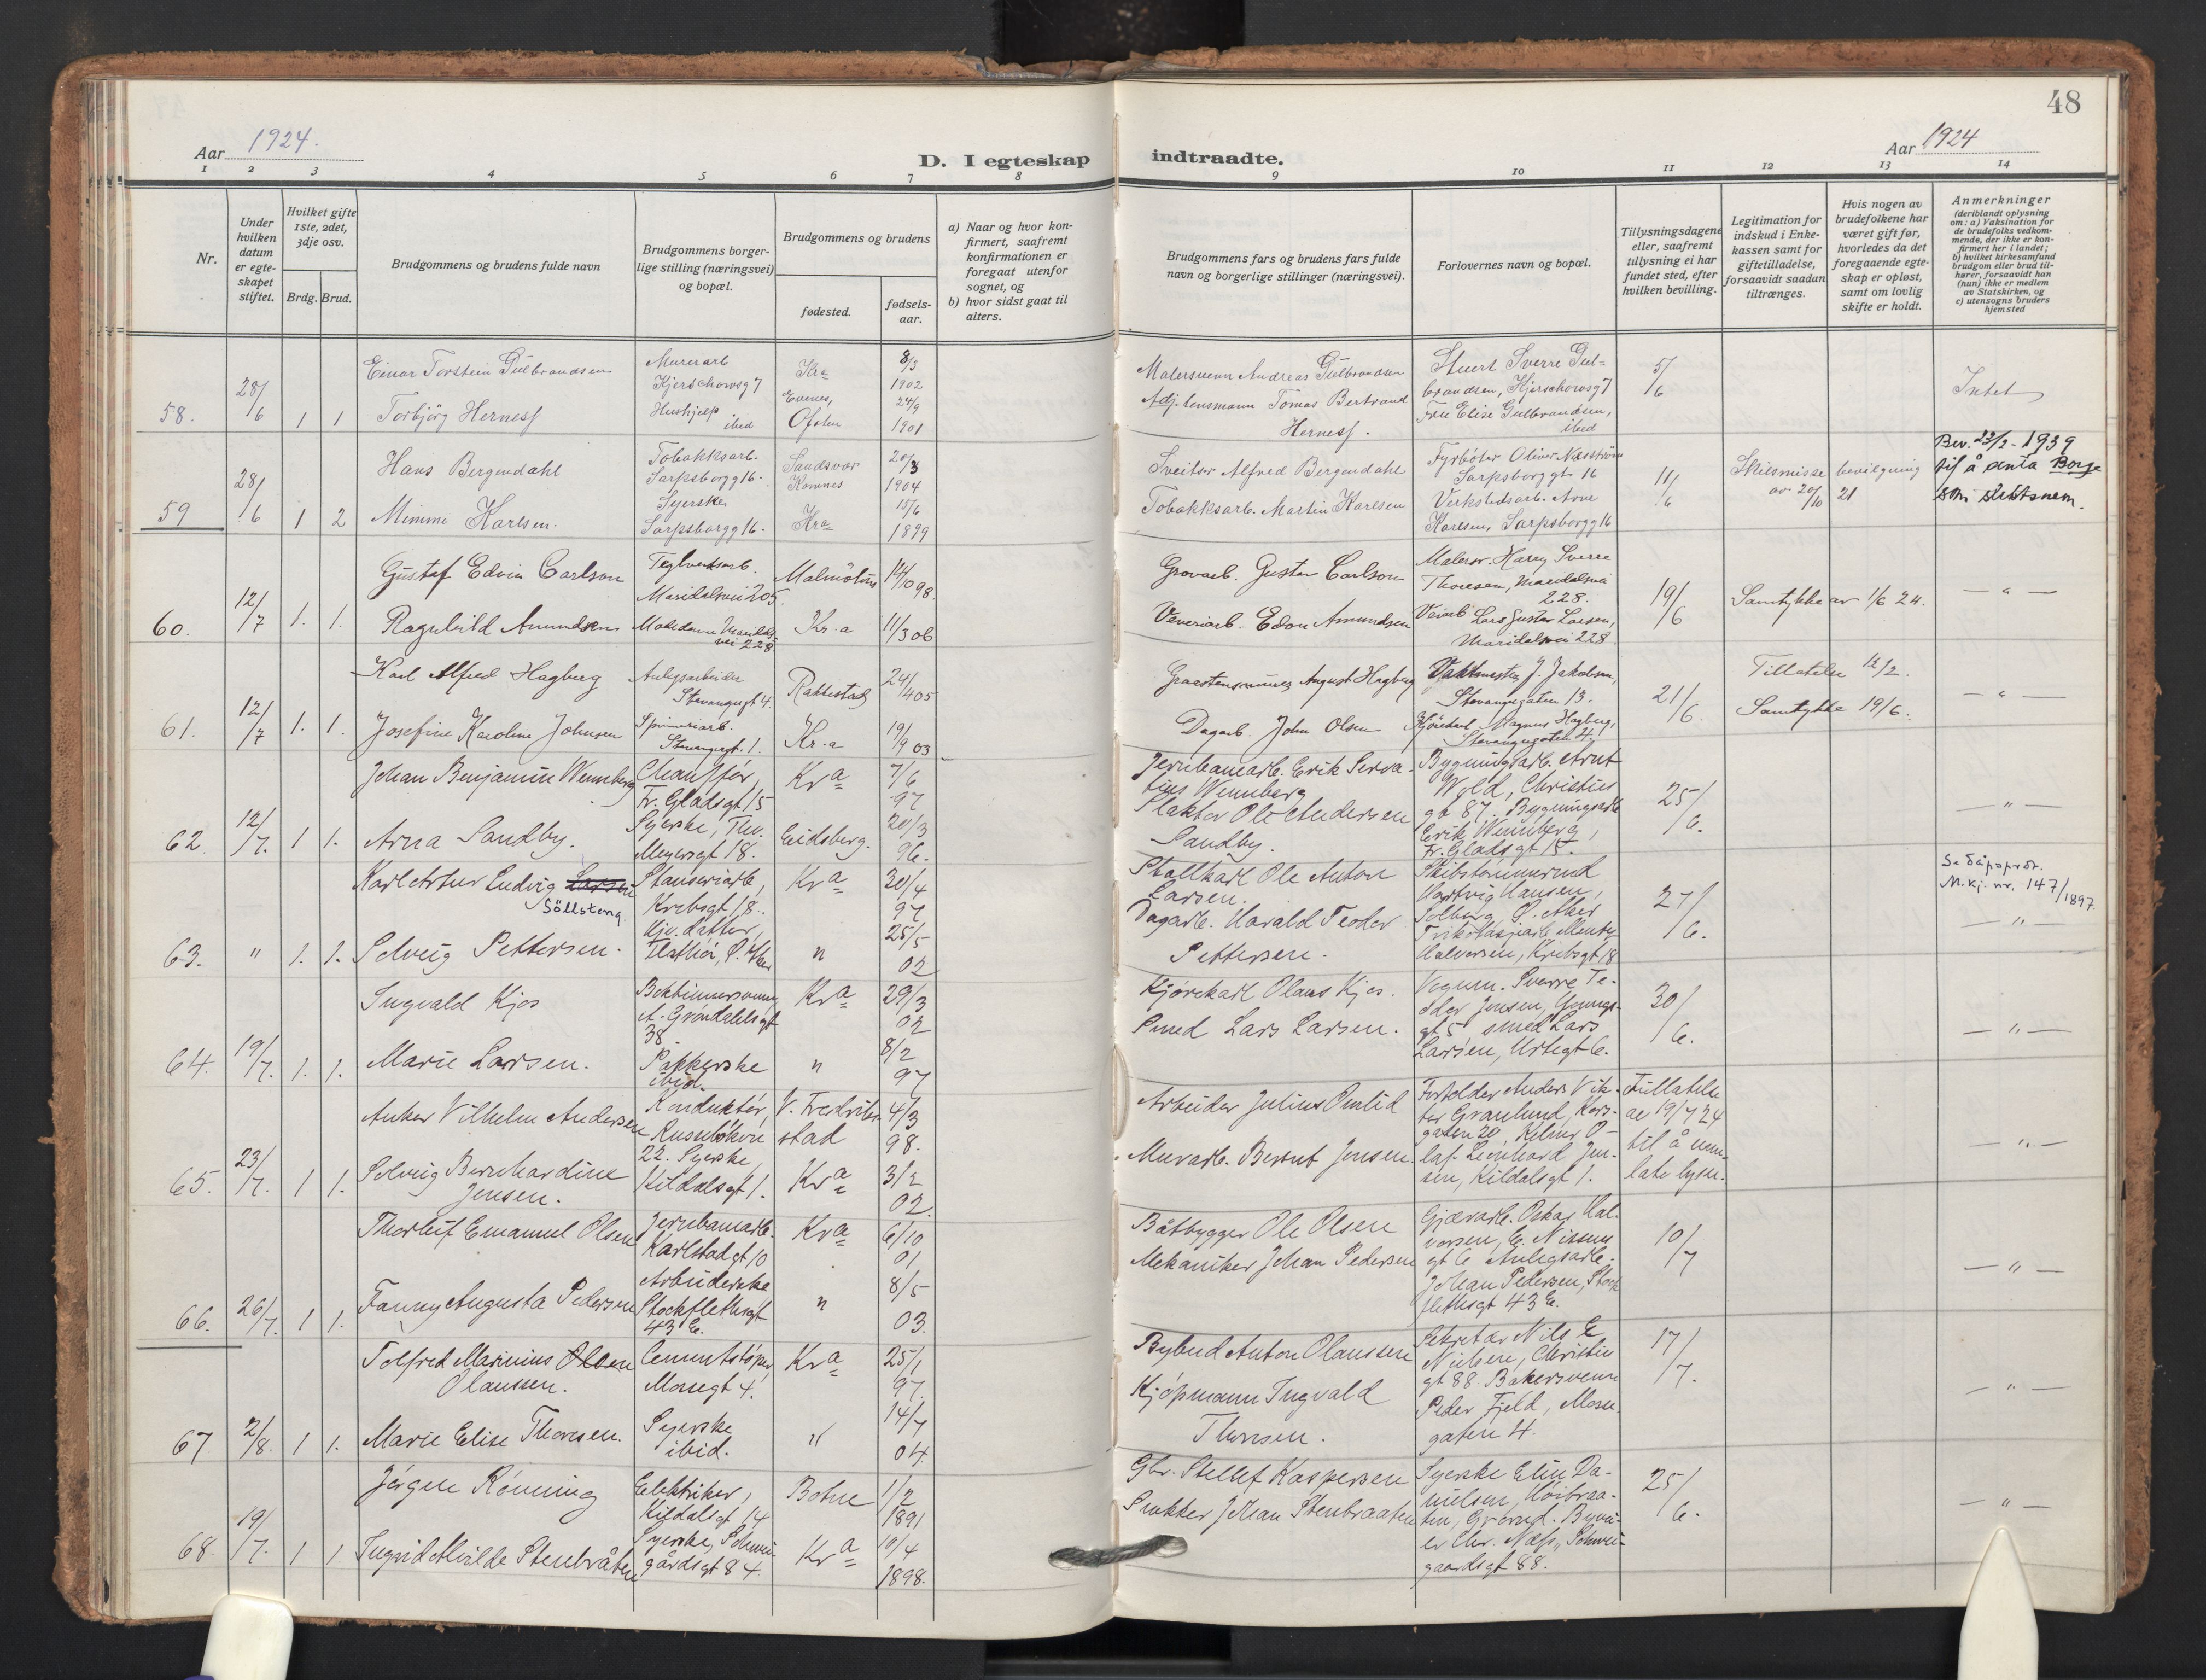 48
Aar 1924.
D. I egteskap
indtraadte.
Aar 1924
1 2 3 4 5 6 7 8 9 10 11 12 13 14
Nr.
Under hvilken datum er egteskapet stiftet.
Hvilket gifte 1ste, 2det, 3dje osv.
Brdg. Brud.
Brudgommens og brudens fulde navn
Brudgommens borgerlige stilling (næringsvei) og bopæl.
Brudgommens og brudens
fødested.
fødselsaar.
a) Naar og hvor konfirmert, saafremt konfirmationen er foregaat utenfor sognet, og
b) hvor sidst gaat til alters.
Brudgommens fars og brudens fars fulde navn og borgerlige stillinger (næringsvei).
Forlovernes navn og bopæl.
Tillysningsdagene eller, saafremt tillysning ei har fundet sted, efter hvilken bevilling.
Legitimation for indskud i Enkekassen samt for giftetilladelse, forsaavidt saadan tiltrænges.
Hvis nogen av brudefolkene har været gift før, hvorledes da det foregaaende egteskap er opløst, samt om lovlig skifte er holdt.
Anmerkninger
(deriblandt oplysning om: a) Vaksination for de brudefolks vedkommende, der ikke er konfirmert her i landet; b) hvilket kirkesamfund brudgom eller brud tilhører, forsaavidt han (hun) ikke er medlem av Statskirken, og c) utensogns bruders hjemsted
58. 28/6 1 1
Einar Torstein Gulbrandsen
Murerarb Kjerschowsg 7
Kra 8/3 1902
Torbjörg Herness
Hushjelp ibid
Evenes, Ofoten 24/9 1901
Malersvenn Andreas Gulbrandsen
Adj. lensmann Tomas Bertrand Herness.
Stuert Sverre Gulbrandsen, Kjerschowsg 7
Frue Elise Gulbrandsen, ibid
5/6
Intet
59 28/6 1 2
Hans Bergendahl
Tobakksarb. Sarpsborgg 16.
Sandsvær Komnes 20/3 1904
Mimmi Karlsen.
Syerske Sarpsborgg 16.
Kra 15/6 1899
Sveitser Alfred Bergendahl
Tobakksarb. Martin Karlsen
Fyrbøter Oliver Næsström Sarpsborggt 16
Verkstedsarb. Arne Karlsen, Sarpsborgg 16
11/6
Skilsmisse bevilgning av 20/10 21
Bev. 23/2 - 1939 til å anta Borge som slektsnavn.
60. 12/7 1. 1.
Gustaf Edvin Carlson
Teglverksarb. Maridalsvei 205.
Malmöhus 14/10 98
Ragnhild Amundsen
Maridalsvei 228
Kr.a 11/3 06
Grovarb. Gustav Carlson
Veveriarb. Edon Amundsen
Malersv. Harry Sverre Thoresen, Maridalsvei 228.
Veiarb Lars Gustav Larsen, Maridalsvei 228.
19/6
Samtykke av 1/6 24.
— " —
61. 12/7 1. 1.
Karl Alfred Hagberg
Anlegsarbeider Stavangergt 4.
Rakkestad 24/4 05
Josefine Karoline Johnsen
Spinneriarb. Stavangergt. 1.
Kr.a 19/9 03
August Hagberg
Dagarb. John Olsen
Vaktmester J. Jakobsen, Stavangergaten 13.
Magnus Hagberg, Stavangergaten 4.
21/6
Tillatelse 12/2.
Samtykke 19/6.
— " —
62. 12/7. 1 1.
Johan Benjamin Wennberg
Chauffør, Fr. Gladsgt 15
Kra 7/6 97
Arna Sandby.
Syerske, Thv. Meyersgt 18.
Eidsberg. 20/3 96.
Jernbanearb. Erik Servatius Wennberg
Slakter Ole Andersen Sandby.
Bygningsarb. Arnt Wold, Christiesgt 87. Bygningsarb Erik Wennberg, Fr. Gladsgt 15.
25/6.
— " —
63. " 1. 1.
Karl Artur Ludvig Larsen
Söllsteng.
Stanseriarb, Krebsgt 18.
Kra 30/4 97
Solveig Pettersen.
Hjv. datter,
" 25/5 02
Stallkarl Ole Anton Larsen.
Dagarb. Harald Teodor Pettersen.
Skibstømmermd Hartvig Hansen, Solberg, Ø. Aker
Halvorsen, Krebsgt 18
27/6.
Se dåpsprot. M.kj. nr. 147/1897.
— " —
64. 19/7. 1. 1.
Ingvald Kjos
Boktrinersvenn, A. Grøndahlsgt 38.
Kra 29/3 02
Marie Larsen.
Pakkerske ibid.
" 8/2 97
Kjørekarl Olaus Kjos.
Smed Lars Larsen.
Vognm. Sverre Teodor Jensen, Youngsgt 5 smed Lars Larsen, Urtegt 6.
30/6.
— " —
65. 23/7. 1 1.
Anker Vilhelm Andersen
Konduktør, Ruseløkvei 22.
V. Fredrikstad 4/3 98.
Solveig Bernhardine Jensen.
Syerske Kildalsgt 1.
Kra 3/2 02.
Arbeider Julius Omlid
Murarb. Bernt Jensen.
Forholder Anders Viktor Granlund, Korsgaten 20, Kelner Olaf Leonhard Jensen, Kildalsgt 1.
Tillatelse av 19/7 24 til å unnlate lysn.
— " —
66. 26/7. 1 1.
Thorleif Emanuel Olsen
Jernbanearb. Karlstadgt 10
Kra 6/10 01
Fanny Augusta Pedersen
Arbeiderske Stockflethsgt 43 E.
" 8/5 03.
Båtbygger Ole Olsen
Mekaniker Johan Pedersen
Gjærarb. Oskar Halvorsen, E. Nissensgt 6 Anlegsarb. Johan Pedersen, Stockflethsgt 43 E.
10/7
— " —
67 2/8. 1 1.
Tolfred Marinius Olsen Olaussen.
Cementstøper Mossegt 4.
Kra 25/1 97.
Marie Elise Thoresen.
Syerske ibid.
" 14/7 04
Bybud Anton Olaussen
Kjøpmann Ingvald Thoresen.
Sekretær Nils E Nielsen, Christiesgt 88 Bakersvenn Peder Fjeld, Mossegaten 4.
17/7.
— " —
68. 19/7. 1 1
Jørgen Rønning
Elektriker, Kildalsgt 14
Botne 1/2 1891
Ingrid Alvilde Stenbråten
Syerske, Schweigårdsgt 84.
Kra 10/4 1898.
Gbr. Stellef Kaspersen
Snekker Johan Stenbraaten
Syerske Elin Danielsen, Høibraaten, Grorud. Chr. Næss, Schweigaardsgt 88.
25/6.
— " —